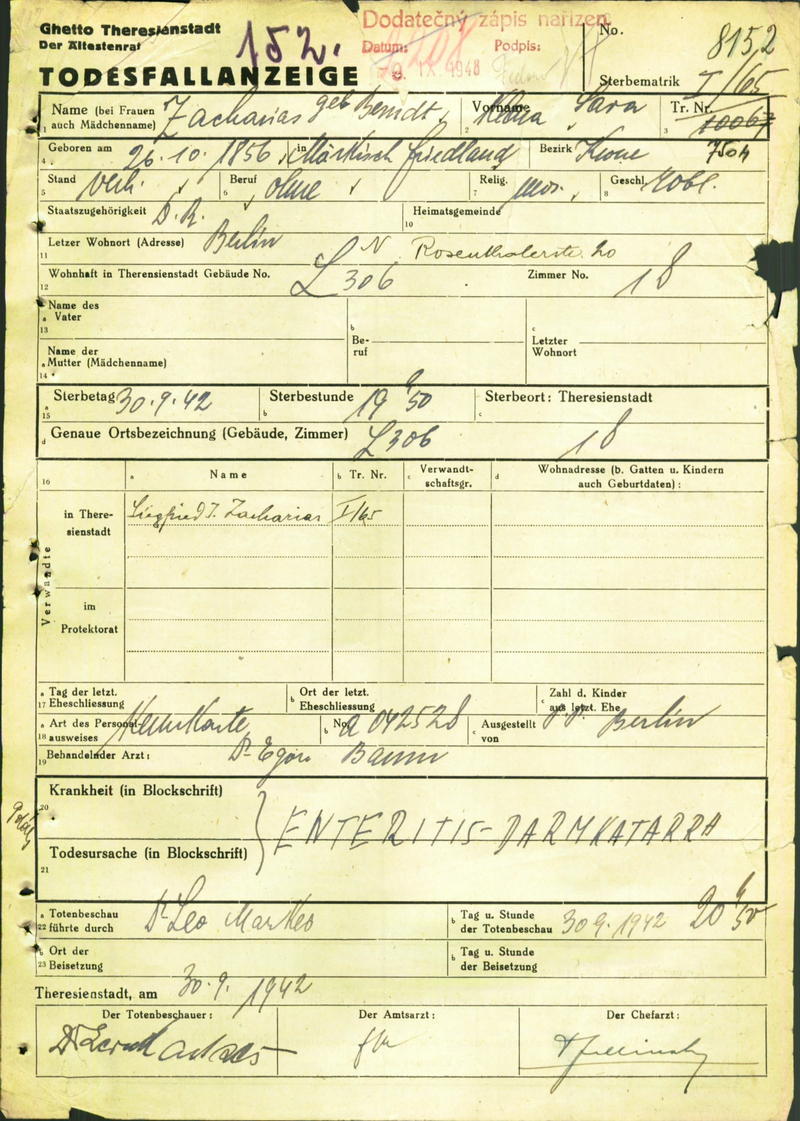 Ghetto Theresienstadt
Der Ältestenrat
TODESFALLANZEIGE
152.
Dodatečný zápis nařízen
Datum: Podpis:
IX 1948
No. 8152
Sterbematrik I/65
Name (bei Frauen auch Mädchenname) Zacharias geb Berndt
1
Vorname Sara
2
Tr. Nr.
3
7504
Geboren am 26.10.1856 in Märkisch Friedland Bezirk Krone
4
Stand verh. Beruf ohne Relig. mos. Geschl.
5 6 7 8
Staatszugehörigkeit D.R. Heimatsgemeinde
9 10
Letzer Wohnort (Adresse) Berlin N. Rosenthalerstr. 20
11
Wohnhaft in Therensienstadt Gebäude No. L 306 Zimmer No. 18
12
Name des
a Vater
13
b
Be-
ruf
c
Letzter
Wohnort
Name der
a Mutter (Mädchenname)
14
Sterbetag 30.9.42 Sterbestunde 19 50 Sterbeort: Theresienstadt
a 15 b c
d Genaue Ortsbezeichnung (Gebäude, Zimmer) L306 18
16 a Name b Tr. Nr. c Verwandt-schaftsgr. d Wohnadresse (b. Gatten u. Kindern auch Geburtdaten):
Verwandte
in There-
sienstadt
Siegfried I. Zacharias I/65
im
Protektorat
a Tag der letzt.
17 Eheschliessung
b Ort der letzt.
Eheschliessung
c Zahl d. Kinder
aus letzt. Ehe
a Art des Personal-
18 ausweises Kennkarte b No. a 042528 c Ausgestellt von P.P. Berlin
19 Behandelnder Arzt: Dr Egon Baum
Krankheit (in Blockschrift)
20
ENTERITIS-DARMKATARRH
Todesursache (in Blockschrift)
21
a Totenbeschau
22 führte durch Dr Leo Markes
b Tag u. Stunde
der Totenbeschau 30 9. 1942 20 50
a Ort der
23 Beisetzung
b Tag u. Stunde
der Beisetzung
Theresienstadt, am 30.9. 1942
Der Totenbeschauer: Der Amtsarzt: Der Chefarzt: